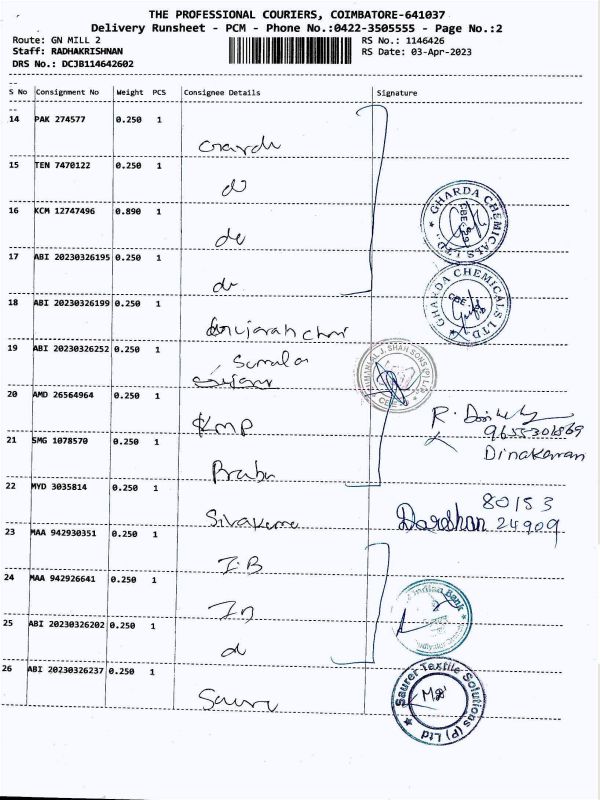 THE PROFESSIONAL COURIERS, COIMBATORE-641037
Delivery Runsheet - PCM - Phone No.:0422-3505555 - Page No.:2
Route: GN MILL 2
RS No.: 1146426
Staff: RADHAKRISHNAN
RS Date: 03-Apr-2023
DRS No.: DCJB114642602
S No Consignment No Weight PCS Consignee Details Signature
14 PAK 274577 0.250 1
15 TEN 7470122 0.250 1
do
16 KCM 12747496 0.890 1
do
GHARDA CHEMICALS LTD
CBE
17 ABI 20230326195 0.250 1
do
GHARDA CHEMICALS LTD
CBE
18 ABI 20230326199 0.250 1
19 ABI 20230326252 0.250 1
J. SHAH SONS (P) LTD
20 AMD 26564964 0.250 1
KMP
R.
Dinakaran
21 SMG 1078570 0.250 1
Prabu
22 MYD 3035814 0.250 1
Sivakumar
80153
Darshan 24909
23 MAA 942930351 0.250 1
I.B
24 MAA 942926641 0.250 1
Indian Bank
25 ABI 20230326202 0.250 1
26 ABI 20230326237 0.250 1
Saurer Textile Solutions (P) Ltd